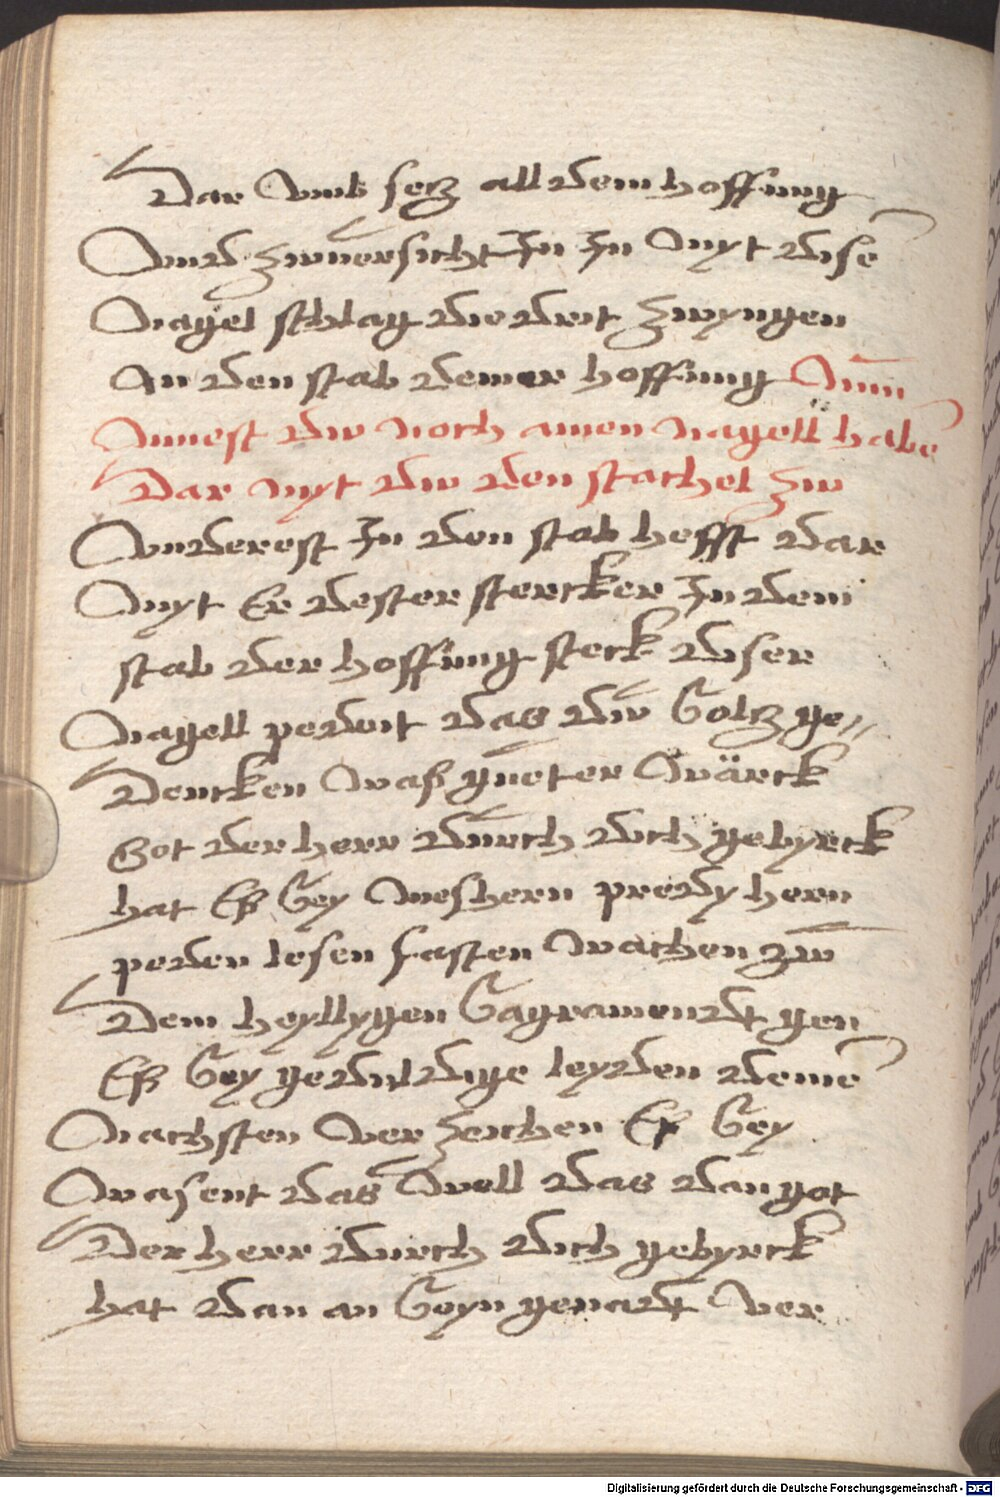 Dar Vmb secz all dein hoffnung
Vnd zwuersicht In In Myt diſē
Nagel schlag die dreit zwyngen
An den stab deiner hoffnung Nun
Muest du noch ainen nagell habē
Dar myt du den stachel zw
Vnderest In den stab hefft dar
Myt Er dester stercker In dem
stab der hoffnung steck diser
Nagell pedeit das du Solcz ge//
Dencken Waß gueter Wärck
Got der herr durch dich gebyrck
hat Eß Sey Meshern predyhern
peden lesen fasten Wachen zw
Dem heyllygen Sagramendt gen
Eß Sey geduldige leyden deinē
Nachsten Verzeichen Eß Sey
Wasent das Well das dan got
Der herr durch dich gebyrck
hat dan an Seyn genadt Ver
Digitalisierung gefördert durch die Deutsche Forschungsgemeinschaft - DFG